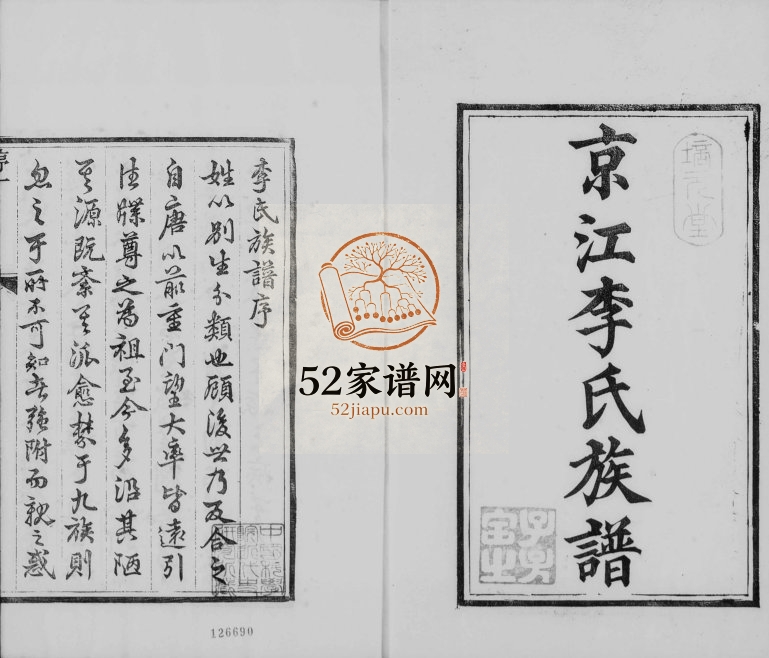 京江李氏族譜
李氏族譜序
姓以別生分類也顧後世乃反合之
自唐以前重門望大率皆遠引
往牒尊之為祖至今多沿其陋
其源既紊其流愈棼于九族則
忽之于所不可知者强附而親之惑
序一
52家谱网
52jiapu.com
126690